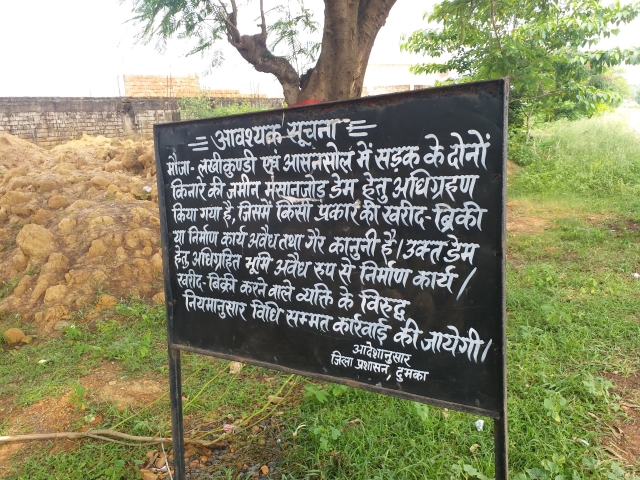 आवश्यक सूचना
मौजा- लखीकुण्डी एवं आसनसोल में सड़क के दोनों
किनारे की जमीन मसानजोड़ डेम हेतु अधिग्रहण
किया गया है, जिसमें किसी प्रकार की खरीद-बिक्री
या निर्माण कार्य अवैध तथा गैर कानूनी है। उक्त डेम
हेतु अधिग्रहित भूमि अवैध रूप से निर्माण कार्य /
खरीद-बिक्री करने वाले व्यक्ति के विरुद्ध
नियमानुसार विधि सम्मत कार्रवाई की जायेगी।
आदेशानुसार
जिला प्रशासन, दुमका